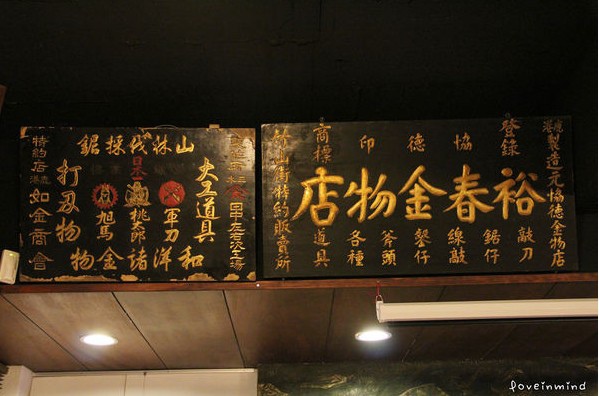 製造元協德金物店
登錄 協德印 商標
裕春金物店
敲刀
鋸仔
線敲
鏨仔
斧頭
各種
道具
竹山街特約販賣所
山林伐採鋸
大工道具
日本一
軍刀
桃太郎
旭馬
打刃物
和洋諸金物
特約店
如金商會
loveinmind